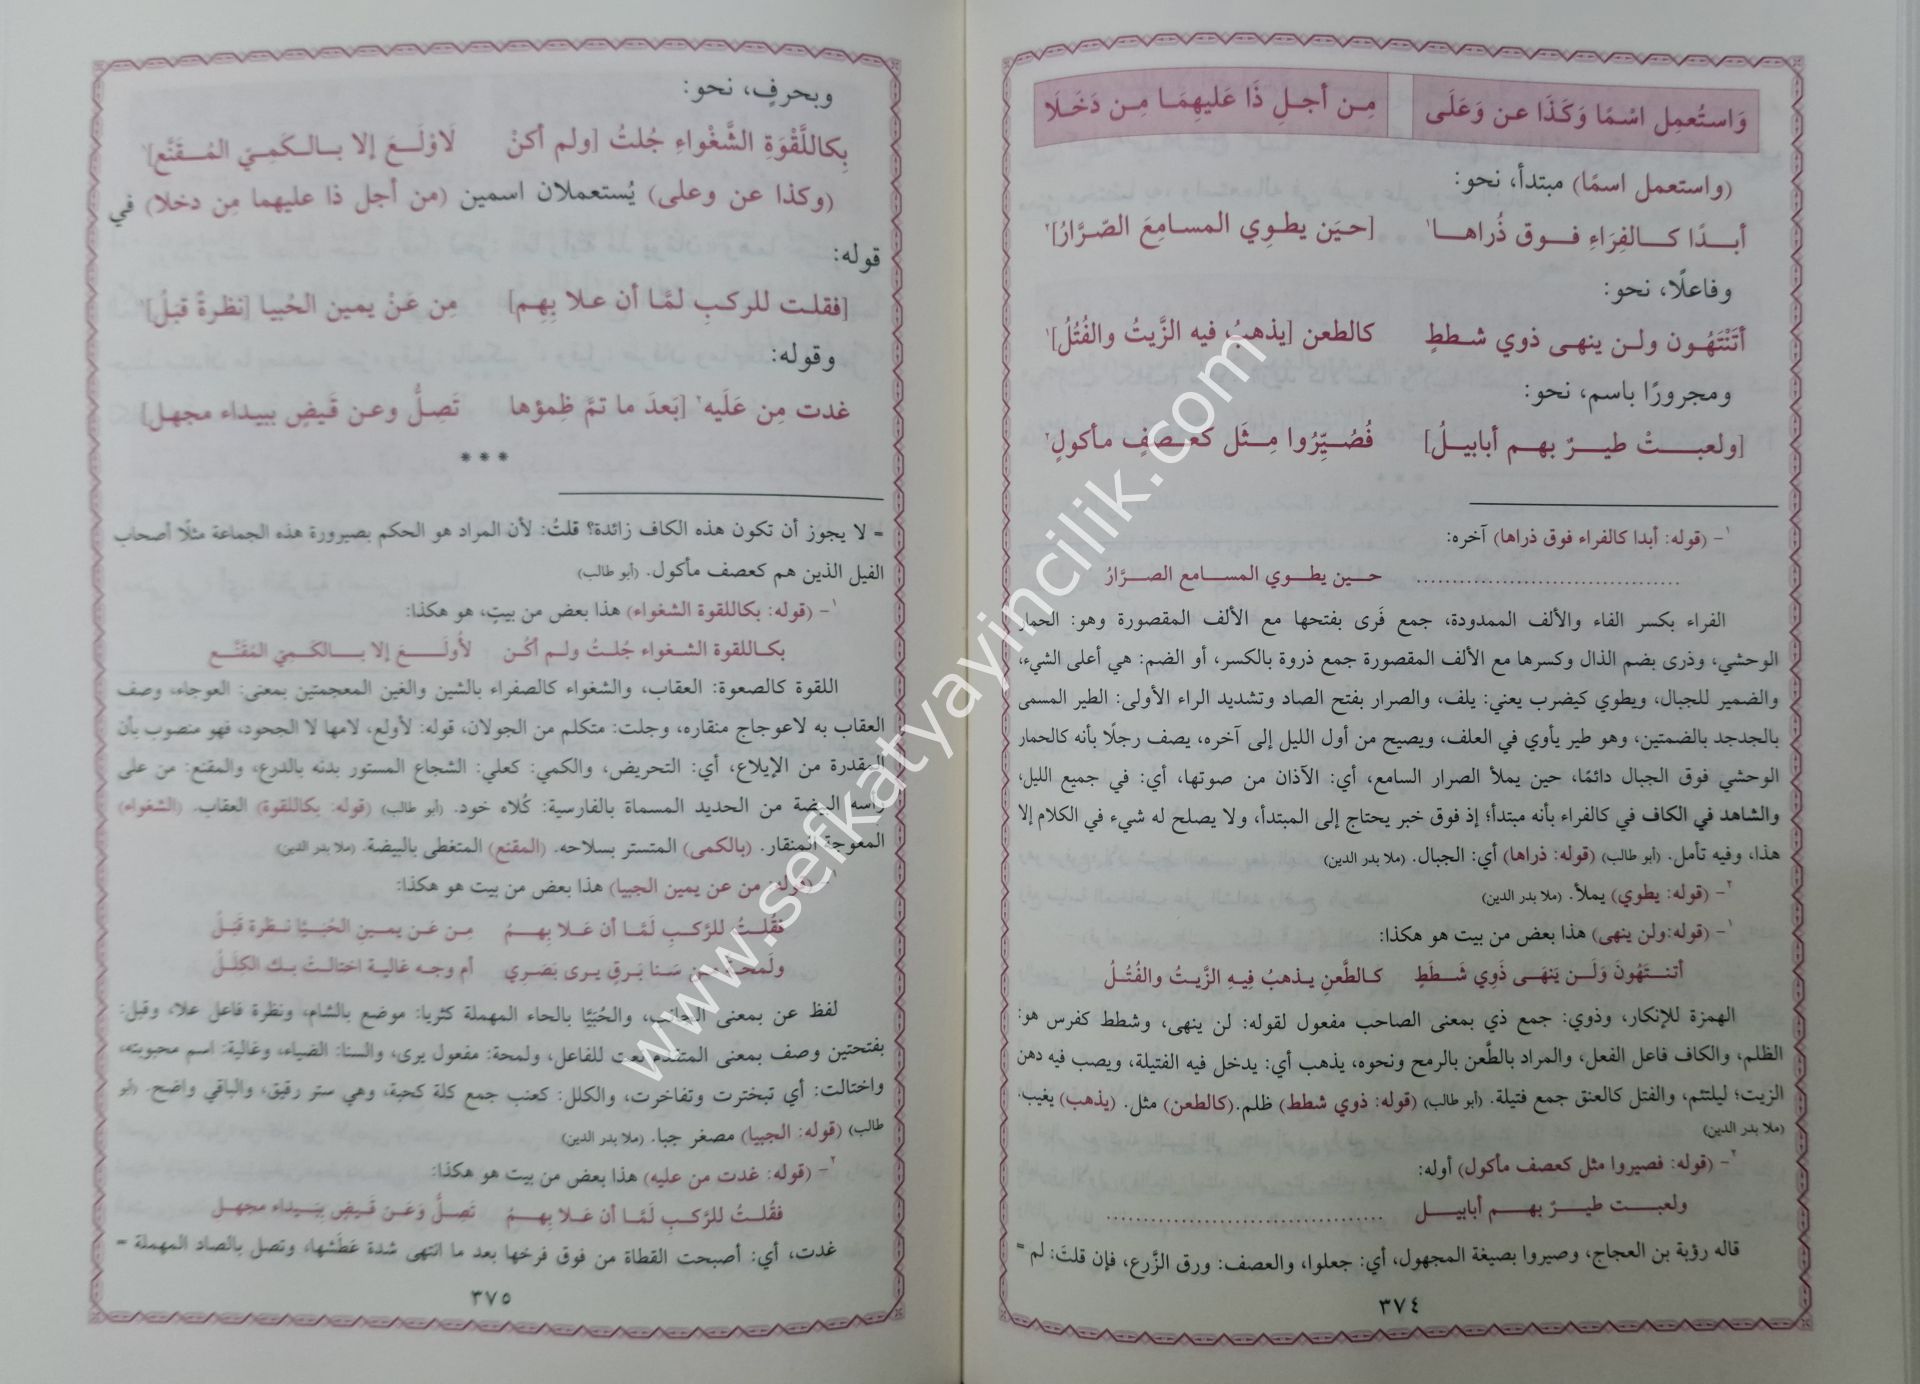 وَاستُعمِل اسْمًا وَكَذَا عن وَعَلَى مِن أجلِ ذَا عَليهِمَا مِن دَخَلَا
(واستعمل اسمًا) مبتدأ، نحو:
أبدًا كالفِرَاءِ فوق ذُراها١ [حيَن يطوِي المسامِعَ الصّرَّارُ]٢
وفاعلًا، نحو:
أتَنْتَهُون ولن ينهى ذوي شططٍ كالطعن [يذهبُ فيه الزَّيتُ والفُتُلُ]١
ومجرورًا باسم، نحو:
[ولعبتْ طيرٌ بهم أبابيلُ] فُصُيِّرُوا مِثَل كَعصفٍ مأكولٍ٢
١– (قوله: أبدا كالفراء فوق ذراها) آخره:
..................................... حين يطوي المسامع الصرَّارُ
الفراء بكسر الفاء والألف الممدودة، جمع فَرى بفتحها مع الألف المقصورة وهو: الحمار
الوحشي، وذرى بضم الذال وكسرها مع الألف المقصورة جمع ذروة بالكسر، أو الضم: هي أعلى الشيء،
والضمير للجبال، ويطوي كيضرب يعني: يلف، والصرار بفتح الصاد وتشديد الراء الأولى: الطير المسمى
بالجدجد بالضمتين، وهو طير يأوي في العلف، ويصيح من أول الليل إلى آخره، يصف رجلًا بأنه كالحمار
الوحشي فوق الجبال دائمًا، حين يملأ الصرار السامع، أي: الآذان من صوتها، أي: في جميع الليل،
والشاهد في الكاف في كالفراء بأنه مبتدأ؛ إذ فوق خبر يحتاج إلى المبتدأ، ولا يصلح له شيء في الكلام إلا
هذا، وفيه تأمل. (أبو طالب) (قوله: ذراها) أي: الجبال. (ملا بدر الدين)
٢– (قوله: يطوي) يملأ. (ملا بدر الدين)
١– (قوله:ولن ينهى) هذا بعض من بيت هو هكذا:
أتنتَهُونَ وَلَن يَنهَى ذَوِي شَطَطٍ كَالطَّعنِ يذهبُ فِيهِ الزَّيتُ والفُتُلُ
الهمزة للإنكار، وذوي: جمع ذي بمعنى الصاحب مفعول لقوله: لن ينهى، وشطط كفرس هو:
الظلم، والكاف فاعل الفعل، والمراد بالطَّعن بالرمح ونحوه، يذهب أي: يدخل فيه الفتيلة، ويصب فيه دهن
الزيت؛ ليلتئم، والفتل كالعنق جمع فتيلة. (أبو طالب) (قوله: ذوي شطط) ظلم.(كالطعن) مثل. (يذهب) يغيب.
(ملا بدر الدين)
٢– (قوله: فصيروا مثل كعصف مأكول) أوله:
ولعبت طيرٌ بهم أبابيل .......................................
قاله رؤبة بن العجاج، وصيروا بصيغة المجهول، أي: جعلوا، والعصف: ورق الزَّرع، فإن قلتَ: لم =
٣٧٤
وبحرفٍ، نحو:
بِكاللَّقْوَةِ الشَّغْواءِ جُلتُ [ولم أكنْ لَاوْلَعَ إلا بالكَمِيّ المُقَنَّع]١
(وكذا عن وعلى) يُستعملان اسمين (من أجل ذا عليهما مِن دخلا) في
قوله:
[فقلت للركبِ لمَّا أن علا بِهِم] مِن عَنْ يمين الحُبيا [نظرةً قبَلُ]٢
وقوله:
غدت مِن عَلَيه٢ [بَعدَ ما تمَّ ظِمؤها تَصِلُّ وعن قَيضٍ ببيداء مجهل]
***
= لا يجوز أن تكون هذه الكاف زائدة؟ قلتُ: لأن المراد هو الحكم بصيرورة هذه الجماعة مثلًا أصحاب
الفيل الذين هم كعصف مأكول. (أبو طالب)
١– (قوله: بكاللقوة الشغواء) هذا بعض من بيتٍ، هو هكذا:
بكاللقوة الشغواء جُلتُ ولم أكُن لأُولَعَ إلا بالكَمِيّ المُقَنَّع
اللقوة كالصعوة: العقاب، والشغواء كالصفراء بالشين والغين المعجمتين بمعنى: العوجاء، وصف
العقاب به لاعوجاج منقاره، وجلت: متكلم من الجولان، قوله: لأولع، لامها لا الجحود، فهو منصوب بأن
المقدرة من الإيلاع، أي: التحريض، والكمي: كعلي: الشجاع المستور بدنه بالدرع، والمقنع: من على
رأسه البيضة من الحديد المسماة بالفارسية: كُلاه خود. (أبو طالب) (قوله: بكاللقوة) العقاب. (الشغواء)
المعوجة المنقار. (بالكمى) المتستر بسلاحه. (المقنع) المتغطى بالبيضة. (ملا بدر الدين)
– (قوله: من عن يمين الجبيا) هذا بعض من بيت هو هكذا:
فقُلتُ للرَّكبِ لَمَّا أن عَلا بِهِمُ مِن عَن يمينِ الحُبَيَّا نَظرَة قَبَلُ
ولَمحةً من سَنا بَرقٍ يرى بَصَرِي أم وجه غالية اختالتَ بك الكِلَلُ
لفظ عن بمعنى الجانب، والحُبَيَّا بالحاء المهملة كثريا: موضع بالشام، ونظرة فاعل علا، وقبل:
بفتحتين وصف بمعنى المتقدم نعت للفاعل، ولمحة: مفعول يرى، والسنا: الضياء، وغالية: اسم محبوبته،
واختالت: أي تبخترت وتفاخرت، والكلل: كعنب جمع كلة كحبة، وهي ستر رقيق، والباقي واضح. (أبو
طالب) (قوله: الجبيا) مصغر جبا. (ملا بدر الدين)
٢– (قوله: غدت من عليه) هذا بعض من بيت هو هكذا:
فقُلتُ للرَّكبِ لَمَّا أن عَلا بِهِمُ تَصِلُّ وَعَن قَيضٍ بِبَيداء مجهل
غدت، أي: أصبحت القطاة من فوق فرخها بعد ما انتهى شدة عَطَشها، وتصل بالصاد المهملة =
٣٧٥
www.sefkatyayincilik.com